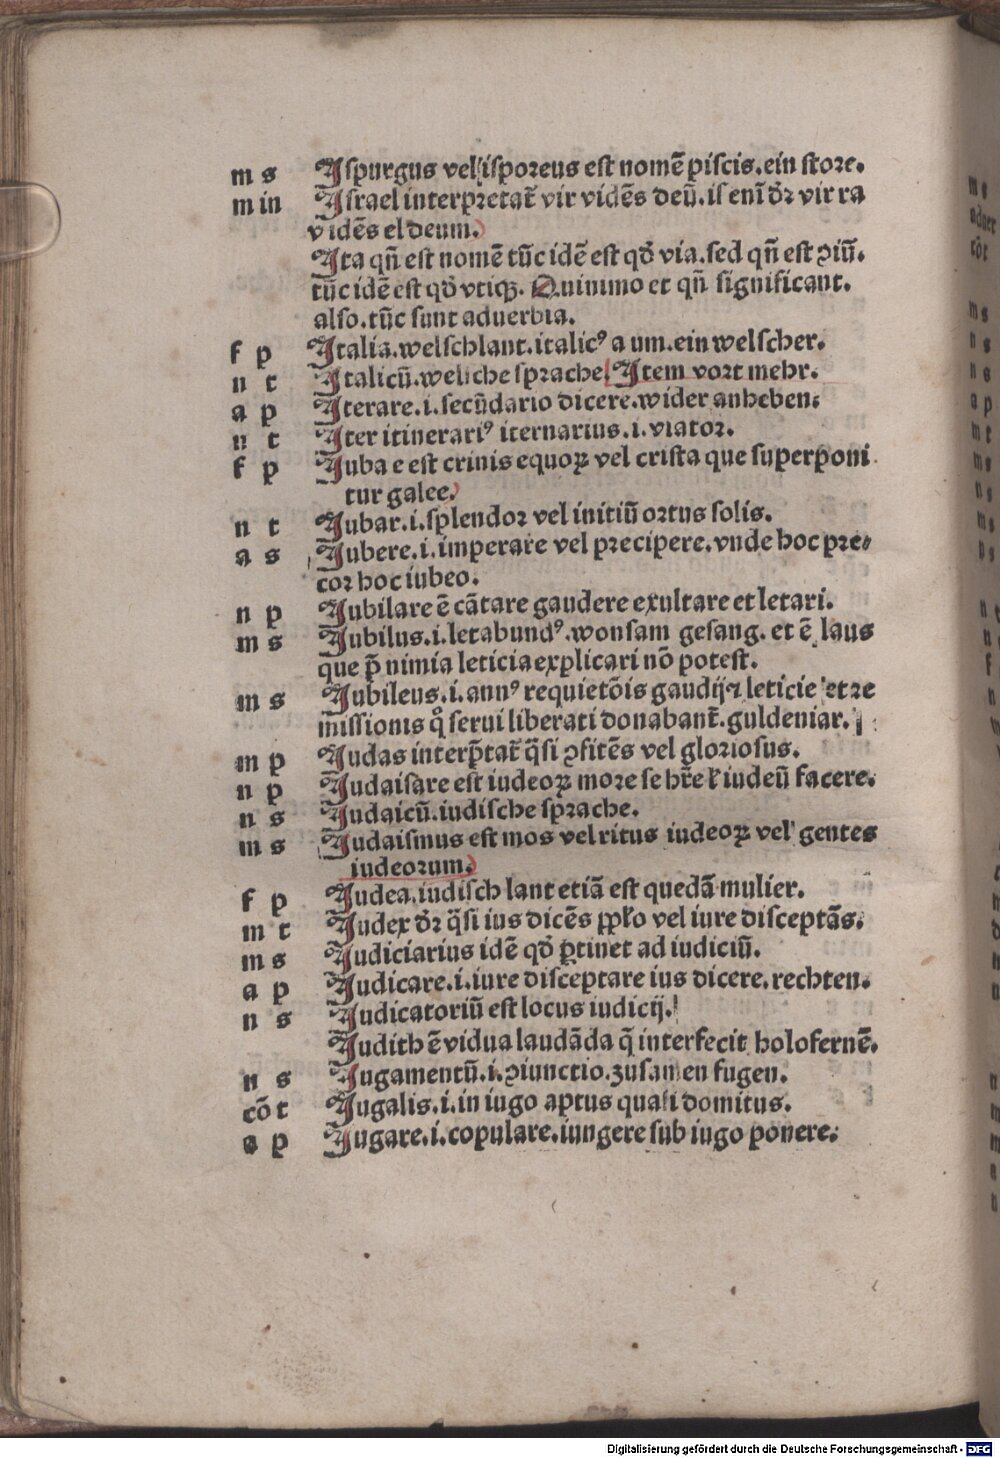 m s Ispurgus vel isporeus est nomē piscis.ein store.
m in Israel interpretat̄ vir vidēs deū.is enī dr̄ vir ra
vidēs el deum.
Ita qn̄ est nomē tūc idē est qd̄ via.sed qn̄ est ꝯiū.
tūc idē est qd̄ vtiqꝫ. Quinimo et qn̄ significant.
also.tūc sunt aduerbia.
f p Italia.welschlant.italicꝰ a um.ein welscher.
n t Italicū.welsche sprache. Item vort mehr.
a p Iterare.i.secūdario dicere.wider anheben.
n t Iter itinerariꝰ iternarius.i.viator.
f p Iuba e est crinis equoꝝ vel crista que superponi
tur galee.
n t Iubar.i.splendor vel initiū ortus solis.
a s Iubere.i.imperare vel precipere.vnde hoc pre⸗
cor hoc iubeo.
n p Iubilare ē cātare gaudere exultare et letari.
m s Iubilus.i.letabundꝰ.wonsam gesang. et ē laus
que p̄ nimia leticia explicari nō potest.
m s Iubileus.i.annꝰ requietōis gaudij ⁊ leticie et re
missionis qͦ serui liberati donabant̄.guldeniar.
m p Iudas interp̄tat̄ q̄si ꝯfitēs vel gloriosus.
n p Iudaisare est iudeoꝝ more se hr̄e ł iudeū facere.
n s Iudaicū.iudische sprache.
m s Iudaismus est mos vel ritus iudeoꝝ vel gentes
iudeorum.
f p Iudea.iudisch lant etiā est quedā mulier.
m t Iudex dr̄ q̄si ius dicēs pp̄lo vel iure disceptās.
m s Iudiciarius idē qd̄ ꝑtinet ad iudiciū.
a p Iudicare.i.iure disceptare ius dicere.rechten.
n s Iudicatoriū est locus iudicij.
Iudith ē vidua laudāda q̄ interfecit holofernē.
n s Iugamentū.i.ꝯiunctio.zusamen fugen.
cō t Iugalis.i.in iugo aptus quasi domitus.
a p Iugare.i.copulare.iungere sub iugo ponere.
Digitalisierung gefördert durch die Deutsche Forschungsgemeinschaft - DFG